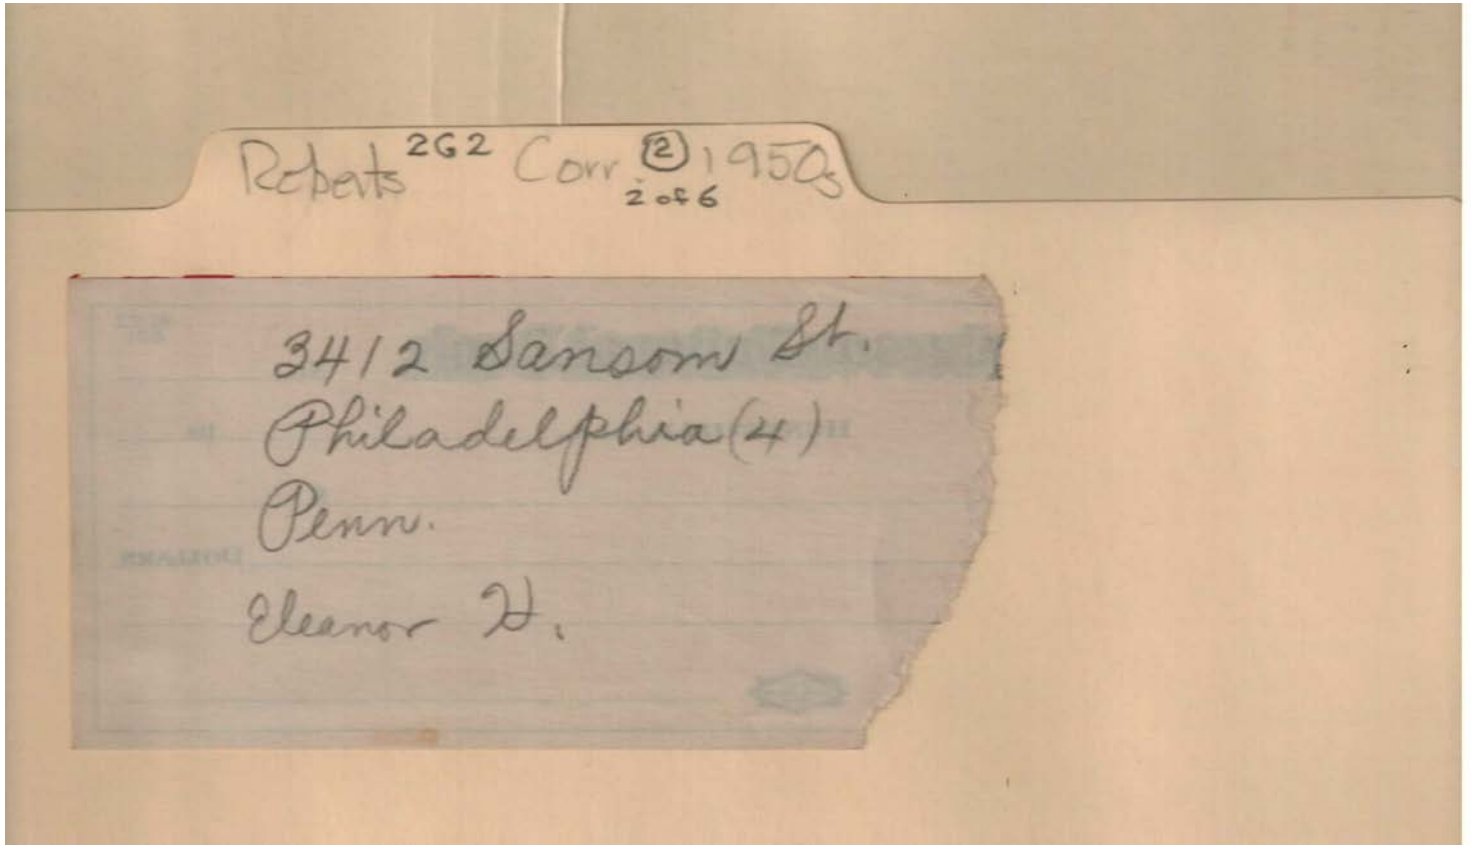 Roberts 2G2 Corr. 2 1950s
2 of 6
3412 Sansom St.
Philadelphia (4)
Penn.
Eleanor H.
DOLLARS